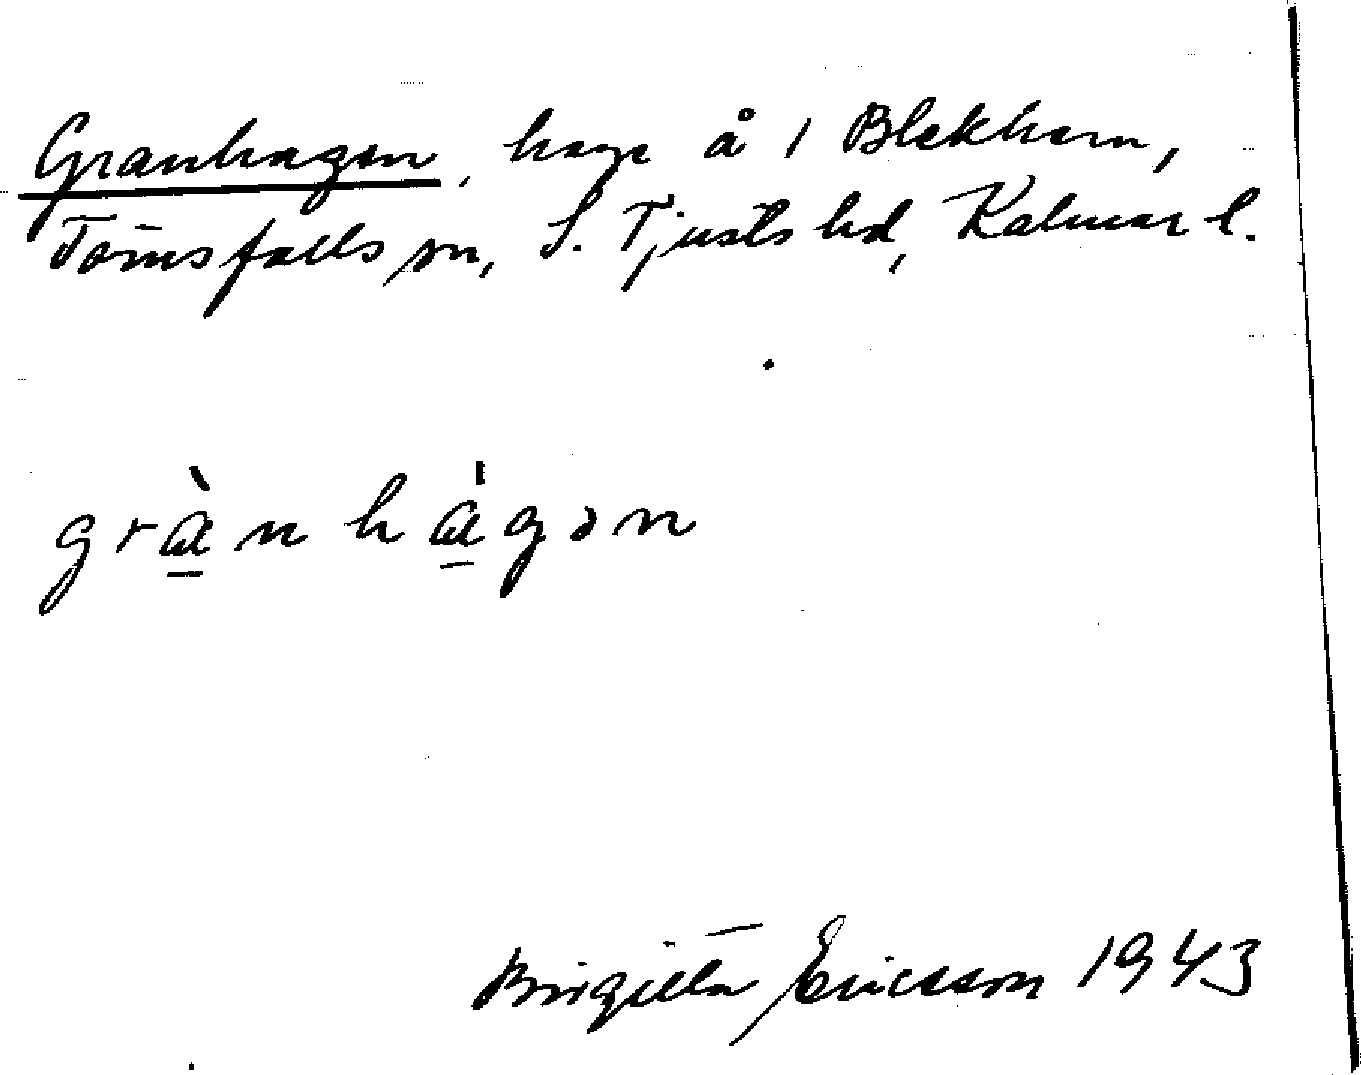 Granhagen, hage å 1 Blekhem,
Törnsfalls sn, S. Tjusts hd, Kalmar l.
grànhágən
Birgitta Ericsson 1943